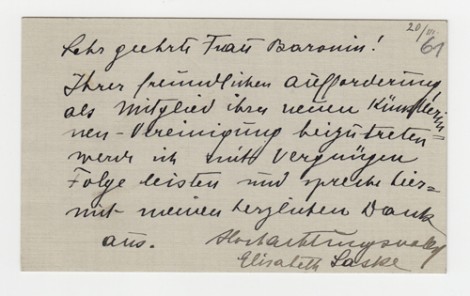 20/VI.
61
Sehr geehrte Frau Baronin!
Ihrer freundlichen Aufforderung
als Mitglied ihrer neuen Künstlerin=
nen-Vereinigung beizutreten
werde ich mit Vergnügen
Folge leisten und spreche hier=
mit meinen herzlichen Dank
aus. Hochachtungsvollst
Elisabeth Laske